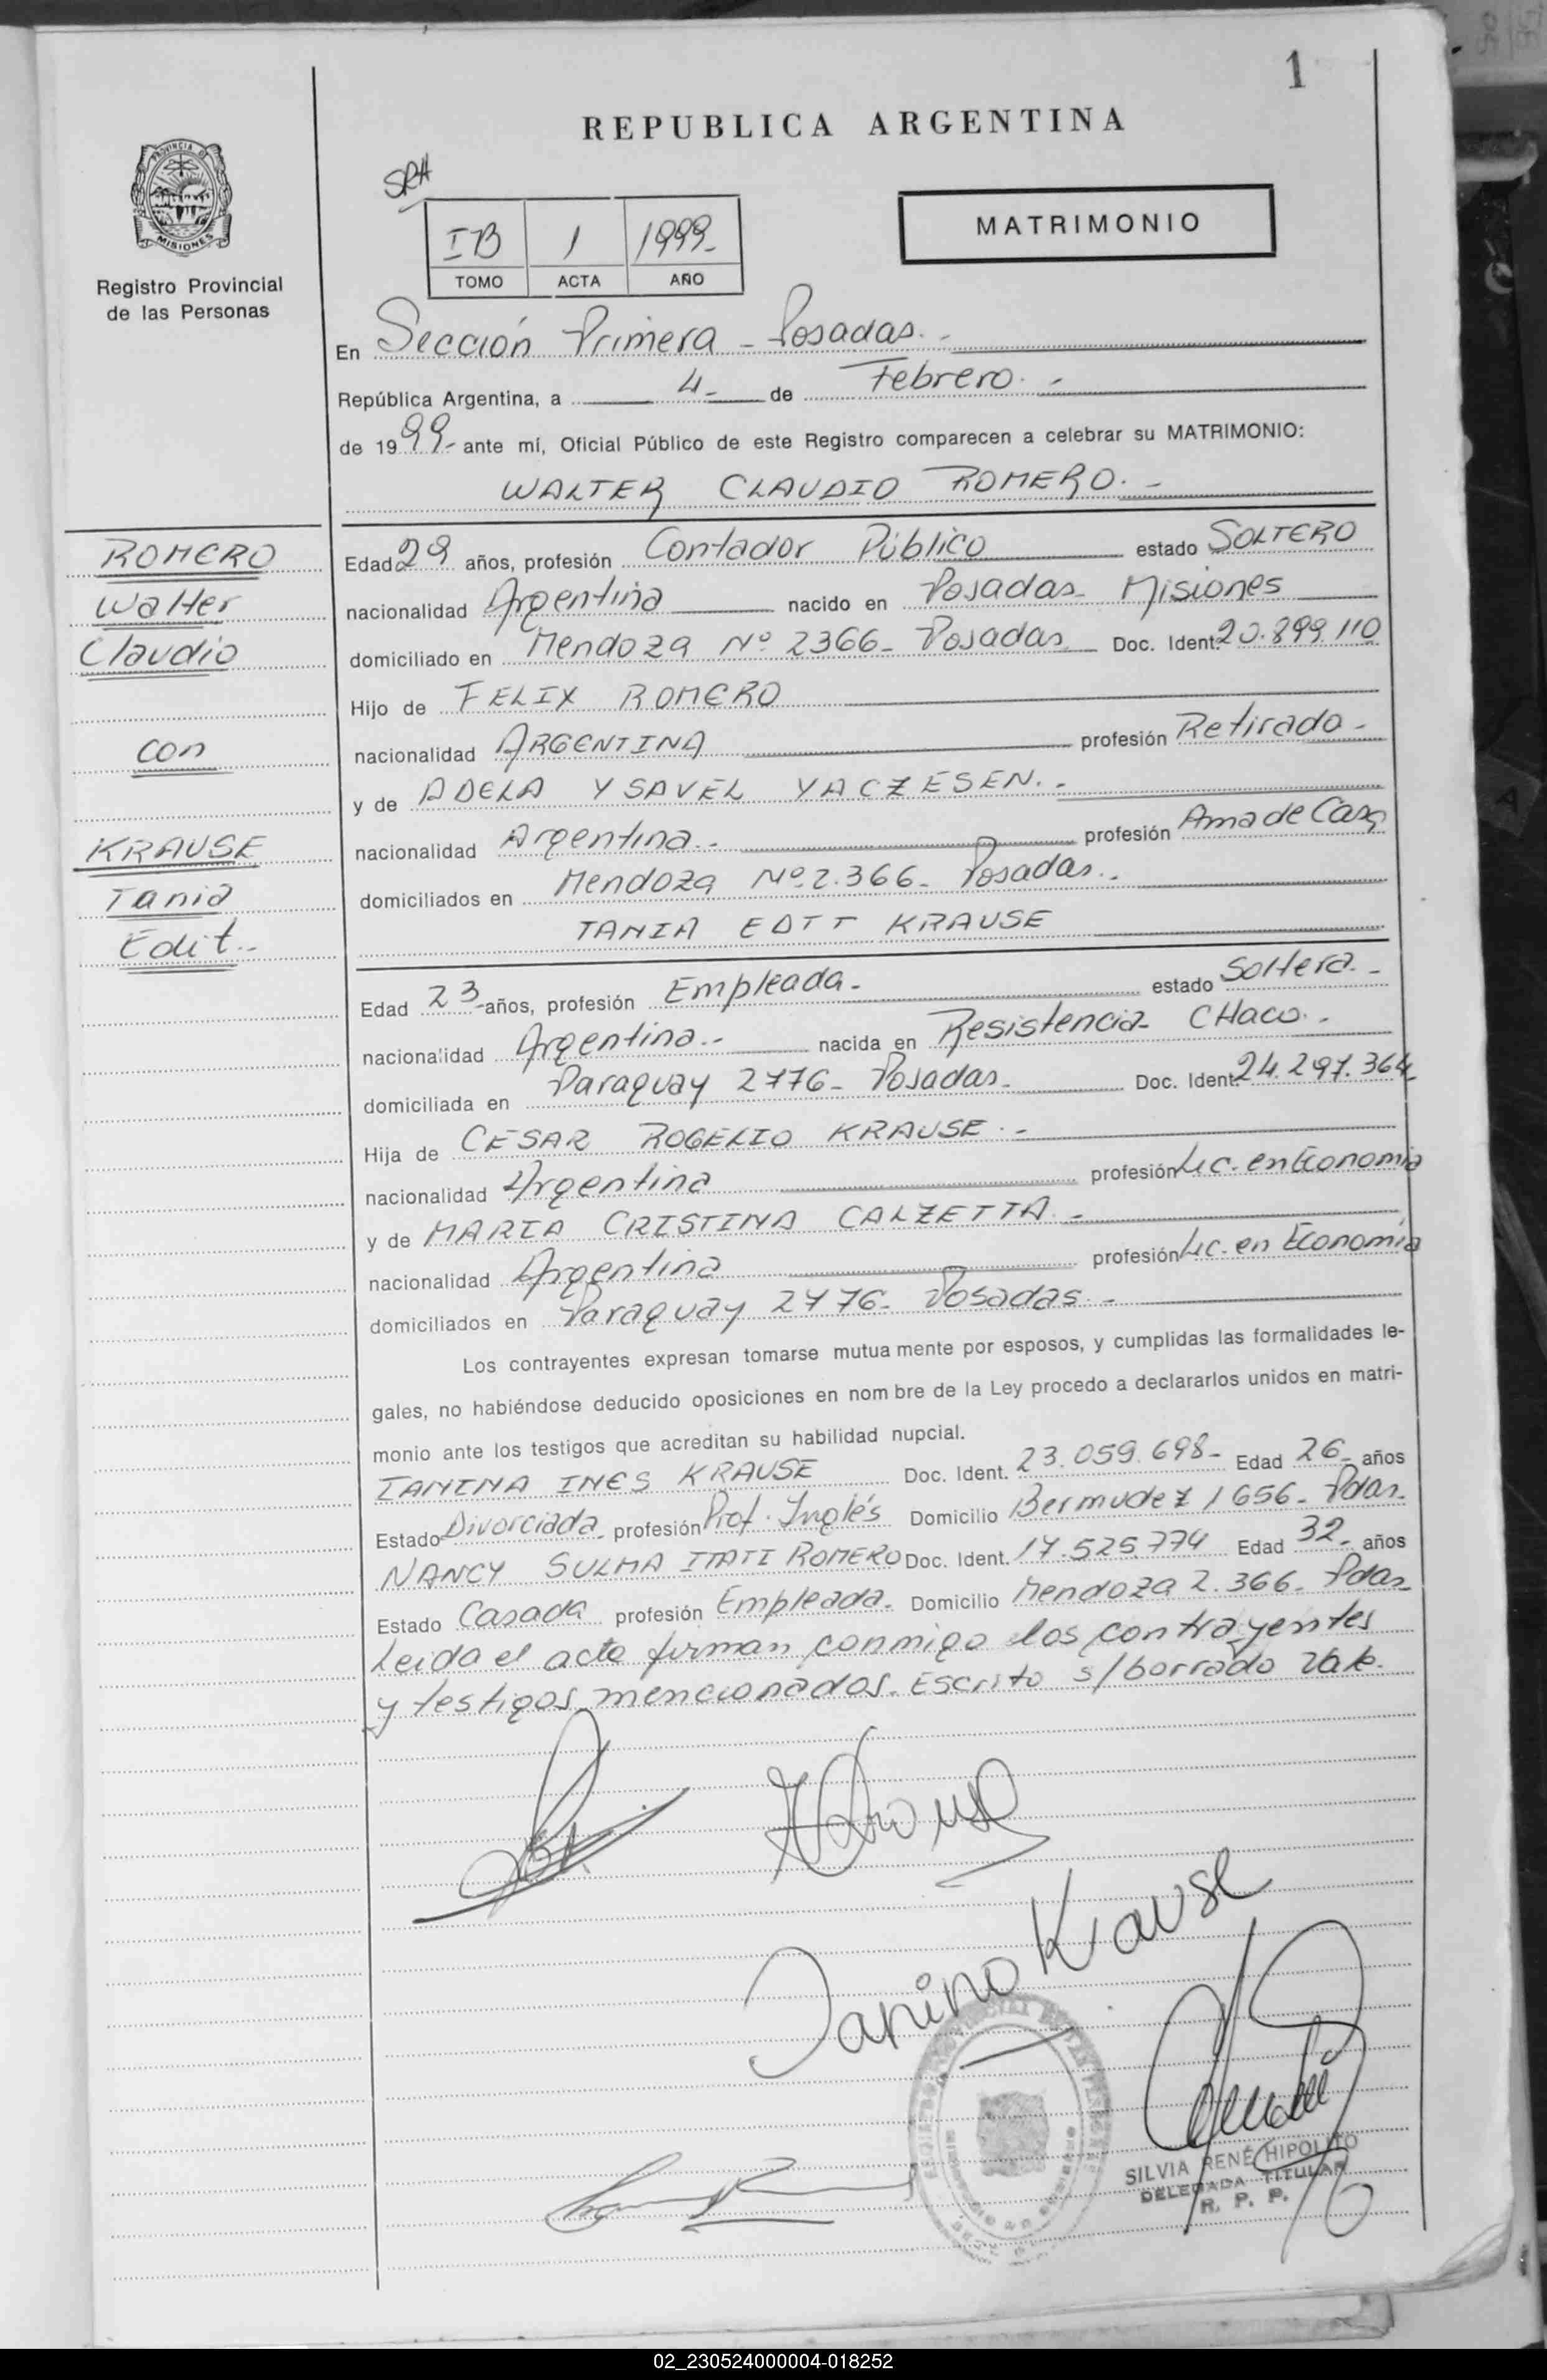 1
REPUBLICA ARGENTINA
PROVINCIA DE
MISIONES
Registro Provincial
de las Personas
SRA
IB 1 1999-
TOMO ACTA AÑO
MATRIMONIO
En Sección Primera - Posadas.-
República Argentina, a 4- de Febrero.-
de 1999- ante mí, Oficial Público de este Registro comparecen a celebrar su MATRIMONIO:
WALTER CLAUDIO ROMERO.-
ROMERO
Walter
Claudio
con
KRAUSE
Tania
Edit.-
Edad 29 años, profesión Contador Público estado SOLTERO
nacionalidad Argentina nacido en Posadas- Misiones
domiciliado en Mendoza Nº 2366- Posadas Doc. Ident. 20.899.110
Hijo de FELIX ROMERO
nacionalidad ARGENTINA profesión Retirado-
y de ADELA YSAVEL YACZESEN.-
nacionalidad Argentina.- profesión Ama de Casa
domiciliados en Mendoza Nº 2.366- Posadas.-
TANIA EDIT KRAUSE
Edad 23- años, profesión Empleada- estado Soltera.-
nacionalidad Argentina.- nacida en Resistencia- CHaco.-
domiciliada en Paraguay 2776- Posadas- Doc. Ident. 24.297.364-
Hija de CESAR ROGELIO KRAUSE.-
nacionalidad Argentina profesión Lic. en Economía
y de MARIA CRISTINA CALZETTA.-
nacionalidad Argentina profesión Lic. en Economía
domiciliados en Paraguay 2776- Posadas.-
Los contrayentes expresan tomarse mutua mente por esposos, y cumplidas las formalidades le-
gales, no habiéndose deducido oposiciones en nom bre de la Ley procedo a declararlos unidos en matri-
monio ante los testigos que acreditan su habilidad nupcial.
IANINA INES KRAUSE Doc. Ident. 23.059.698- Edad 26- años
Estado Divorciada profesión Prof. Inglés Domicilio Bermudez 1656- Pdas.
NANCY SULMA ITATI ROMERO Doc. Ident. 17.525.774 Edad 32- años
Estado Casada profesión Empleada- Domicilio Mendoza 2.366- Pdas-
Leida el acta firman conmigo los contrayentes
y testigos mencionados. Escrito s/borrado Vale.
Krause
Janina Krause
SILVIA RENÉ HIPOLITO
DELEGADA TITULAR
R. P. P.
02_230524000004-018252